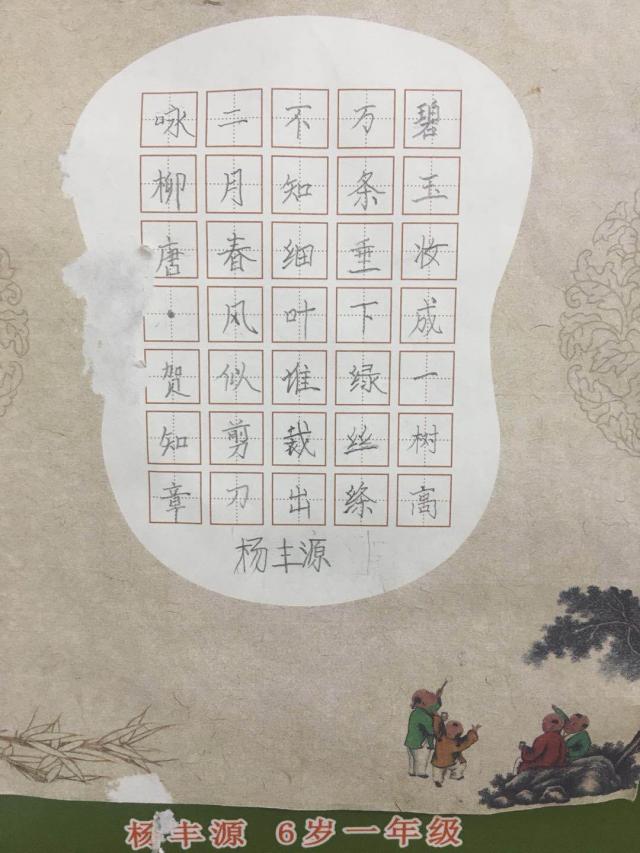 碧玉妆成一树高
万条垂下绿丝绦
不知细叶谁裁出
二月春风似剪刀
咏柳唐·贺知章
杨丰源
杨丰源 6岁一年级